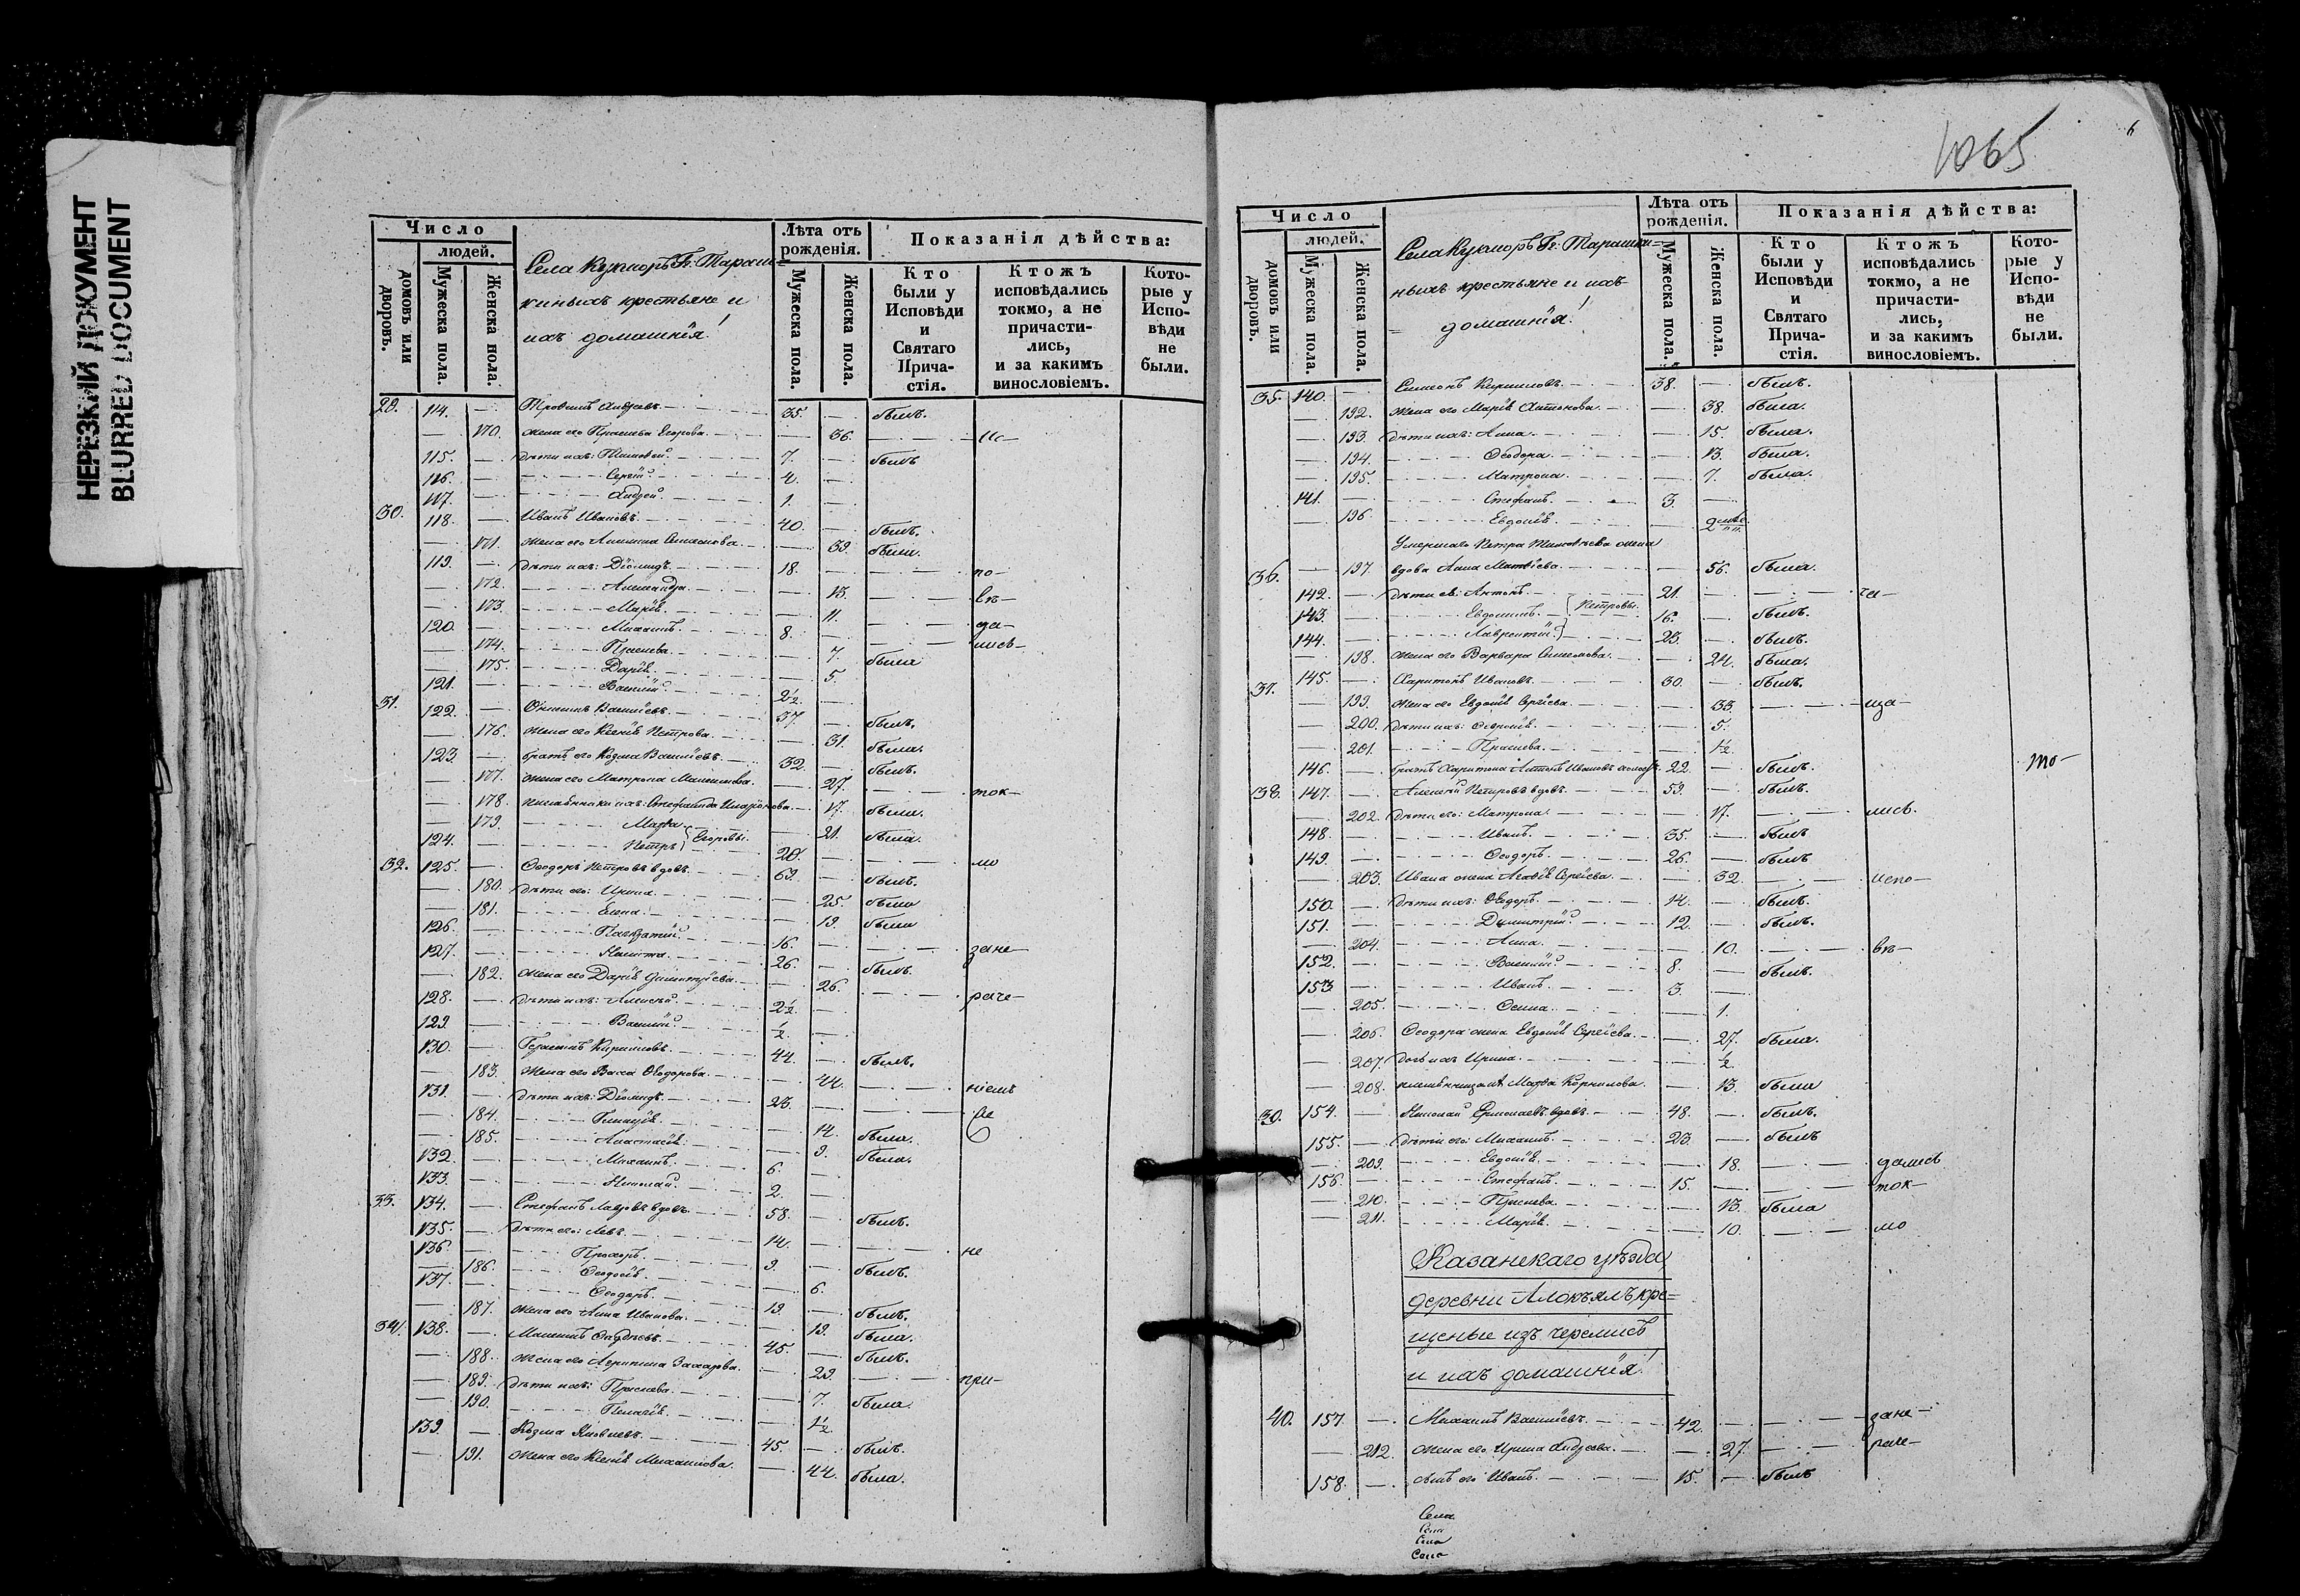 НЕРЕЗКИЙ ДОКУМЕНТ
BLURRED DOCUMENT
Число
людей.
домовъ или дворовъ.
Мужеска пола.
Женска пола.
Села Кукморъ Гг. Тараш=
киныхъ крестьяне и
ихъ домашнія!
Лѣта отъ рожденія.
Мужеска пола.
Женска пола.
Показанія дѣйства:
Кто были у Исповѣди и Святаго Причастія.
Ктожъ исповѣдались токмо, а не причастились, и за какимъ винословіемъ.
Которые у Исповѣди не были.
29. 114. — Трофимъ Андреевъ 35. — былъ.
— 170. жена его Праскева Егорова — 36. — ис—
115. — дѣти ихъ: Тимофей 7. — былъ
116. — Сергій 4. —
117. — Андрей 1. —
30. 118. — Иванъ Ивановъ 40. — былъ.
— 171. жена его Акилина Симеонова — 39. была.
119. — дѣти ихъ: Діомидъ 18. — по—
— 172. Александра — 13. — вѣ—
— 173. Марія — 11. — да—
120. — Михаилъ 8. — лись—
— 174. Праскева — 7. была
— 175. Дарія — 5.
121. — Василій 2½. —
31. 122. — Василіевъ 37. — былъ.
— 176. жена его Ксенія Петрова — 31. была.
123. — братъ его Козма Василіевъ 32. — былъ.
— 177. жена его Матрона — 27. — ток—
— 178. ихъ: Стефанида — 17. была.
— 179. Марфа — 21. была.
124. — Петръ Егоровы 20. — мо
32. 125. — Ѳеодоръ Петровъ вдовъ 69. — былъ.
— 180. дѣти его: Ирина — 25. была
— 181. Елена — 19. была
126. — Панкратій 16. — зане—
127. — Никита 26. — былъ
— 182. жена его Дарія Димитріева — 26. — раче—
128. — дѣти ихъ: Алексѣй 2½. —
129. — Василій ½. —
130. — Герасимъ Кириловъ 44. — былъ.
— 183. жена его Васса Ѳеодорова — 44. — ніемъ
131. — дѣти ихъ: Діомидъ 23. —
— 184. Гликерія — 14. была.
— 185. Анастасія — 9. была.
132. — Михаилъ 6. —
133. — Николай 2.
33. 134. — Стефанъ Лавровъ вдовъ 58. — былъ.
135. — дѣти его: Левъ 14. — не
136. — Прохоръ 9. — былъ.
— 186. Ѳеодосія — 6.
137. — Ѳеодоръ 19. — былъ.
— 187. жена его Анна Иванова — 19. была.
34. 138. — Максимъ 45. — былъ.
— 188. жена его Агрипина Захарова — 29. — при—
— 189. дѣти ихъ: Праскева — 7. была
— 190. Пелагія — 1½
139. — Козма Яковлевъ 45. — былъ
— 191. жена его Ксенія Михаилова — 44. была.
1065
6
Число
людей.
домовъ или дворовъ.
Мужеска пола.
Женска пола.
Села Кукморъ Гг. Тарашки=
ныхъ крестьяне и ихъ
домашнія!
Лѣта отъ рожденія.
Мужеска пола.
Женска пола.
Показанія дѣйства:
Кто были у Исповѣди и Святаго Причастія.
Ктожъ исповѣдались токмо, а не причастились, и за какимъ винословіемъ.
Которые у Исповѣди не были.
35. 140. — Симеонъ Кириловъ 38. — былъ.
— 192. жена его Марія Антонова — 38. была.
— 193. дѣти ихъ: Анна — 15. была.
— 194. Ѳеодора — 13. была.
— 195. Матрона — 7. была.
141. — Стефанъ 3. —
— 196. Евдокія — 2
Умершаго Петра Тимоѳѣева жена
36. — 197. вдова Анна Матвѣева — 56. была.
142. — дѣти ея: Антонъ 21. — ча—
143. — Евдокимъ Петровы 16. — былъ.
144. — Лаврентій 23. — былъ.
— 198. жена его Варвара Симеонова — 24. была.
37. 145. — Харитонъ Ивановъ 30. — былъ.
— 199. жена его Евдокія Сергіева — 33. — ща—
— 200. дѣти ихъ: — 5.
— 201. Праскева — 1½.
146. — братъ Харитона Антонъ Ивановъ холостъ 22. — былъ. то—
38. 147. — Алексѣй Петровъ вдовъ 59. — былъ.
— 202. дѣти его: Матрона — 17. — лись.
148. — Иванъ 35. — былъ
149. — Ѳеодоръ 26. — былъ
— 203. Ивана жена Агафія Сергіева — 32. — испо—
150. — дѣти ихъ: Ѳеодоръ 14. — былъ.
151. — Димитрій 12. — былъ.
— 204. Анна — 10. — вѣ—
152. — Василій 8. — былъ.
153 — Иванъ 3. —
— 205. — 1.
— 206. Ѳеодора жена Евдокія Сергіева — 27. была.
— 207. дочь ихъ Ирина — ½.
— 208. племянница Марфа Корнилова — 13. была
39. 154. — Николай вдовъ 48. — былъ.
155. — дѣти его: Михаилъ 23. — былъ
— 209. Евдокія — 18. — дались
156. — Стефанъ 15. — ток—
— 210. Праскева — 13. была
— 211. Марія — 10. — мо
Казанскаго уѣзда
деревни Алокъялъ, кре=
щеные изъ черемисъ
и ихъ домашнія!
40. 157. — Михаилъ Василіевъ 42. — зане—
— 212. жена его Ирина Андреева — 27. — раче—
158. — сынъ его Иванъ 15. — былъ
Села
Села
Села
Села